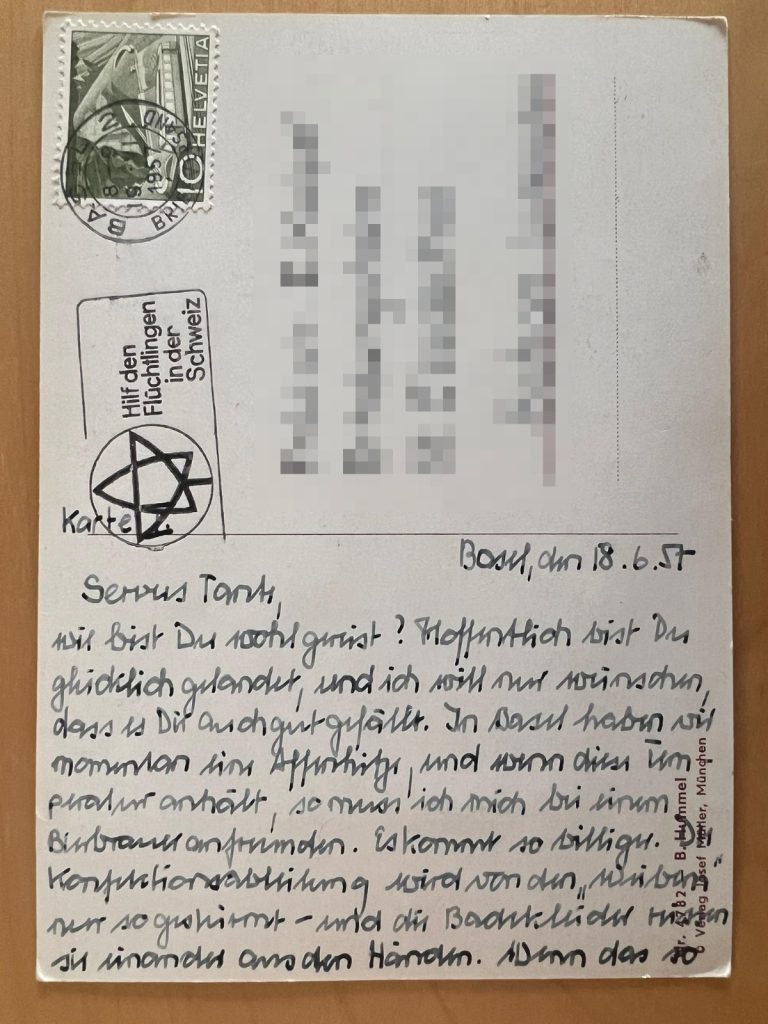 HELVETIA
10
BASEL 2
BRIEFVERSAND
Hilf den
Flüchtlingen
in der
Schweiz
Karte
Basel, den 18.6.57
Servus
wie bist Du wohl gereist? Hoffentlich bist Du
glücklich gelandet, und ich will nur wünschen,
dass es Dir auch gut gefällt. In Basel haben wir
momentan eine Affenhitze, und wenn diese Tem
peratur anhält, so muss ich mich bei einem
Bierbrauer anfreunden. Es kommt so billiger.
Konfektionsabteilung wird von den „Wieben"
nur so gestürmt - und die Badekleider reissen
sie einander aus den Händen. Wenn das so
Nr. 4782 B. Hummel
© Verlag Josef Müller, München